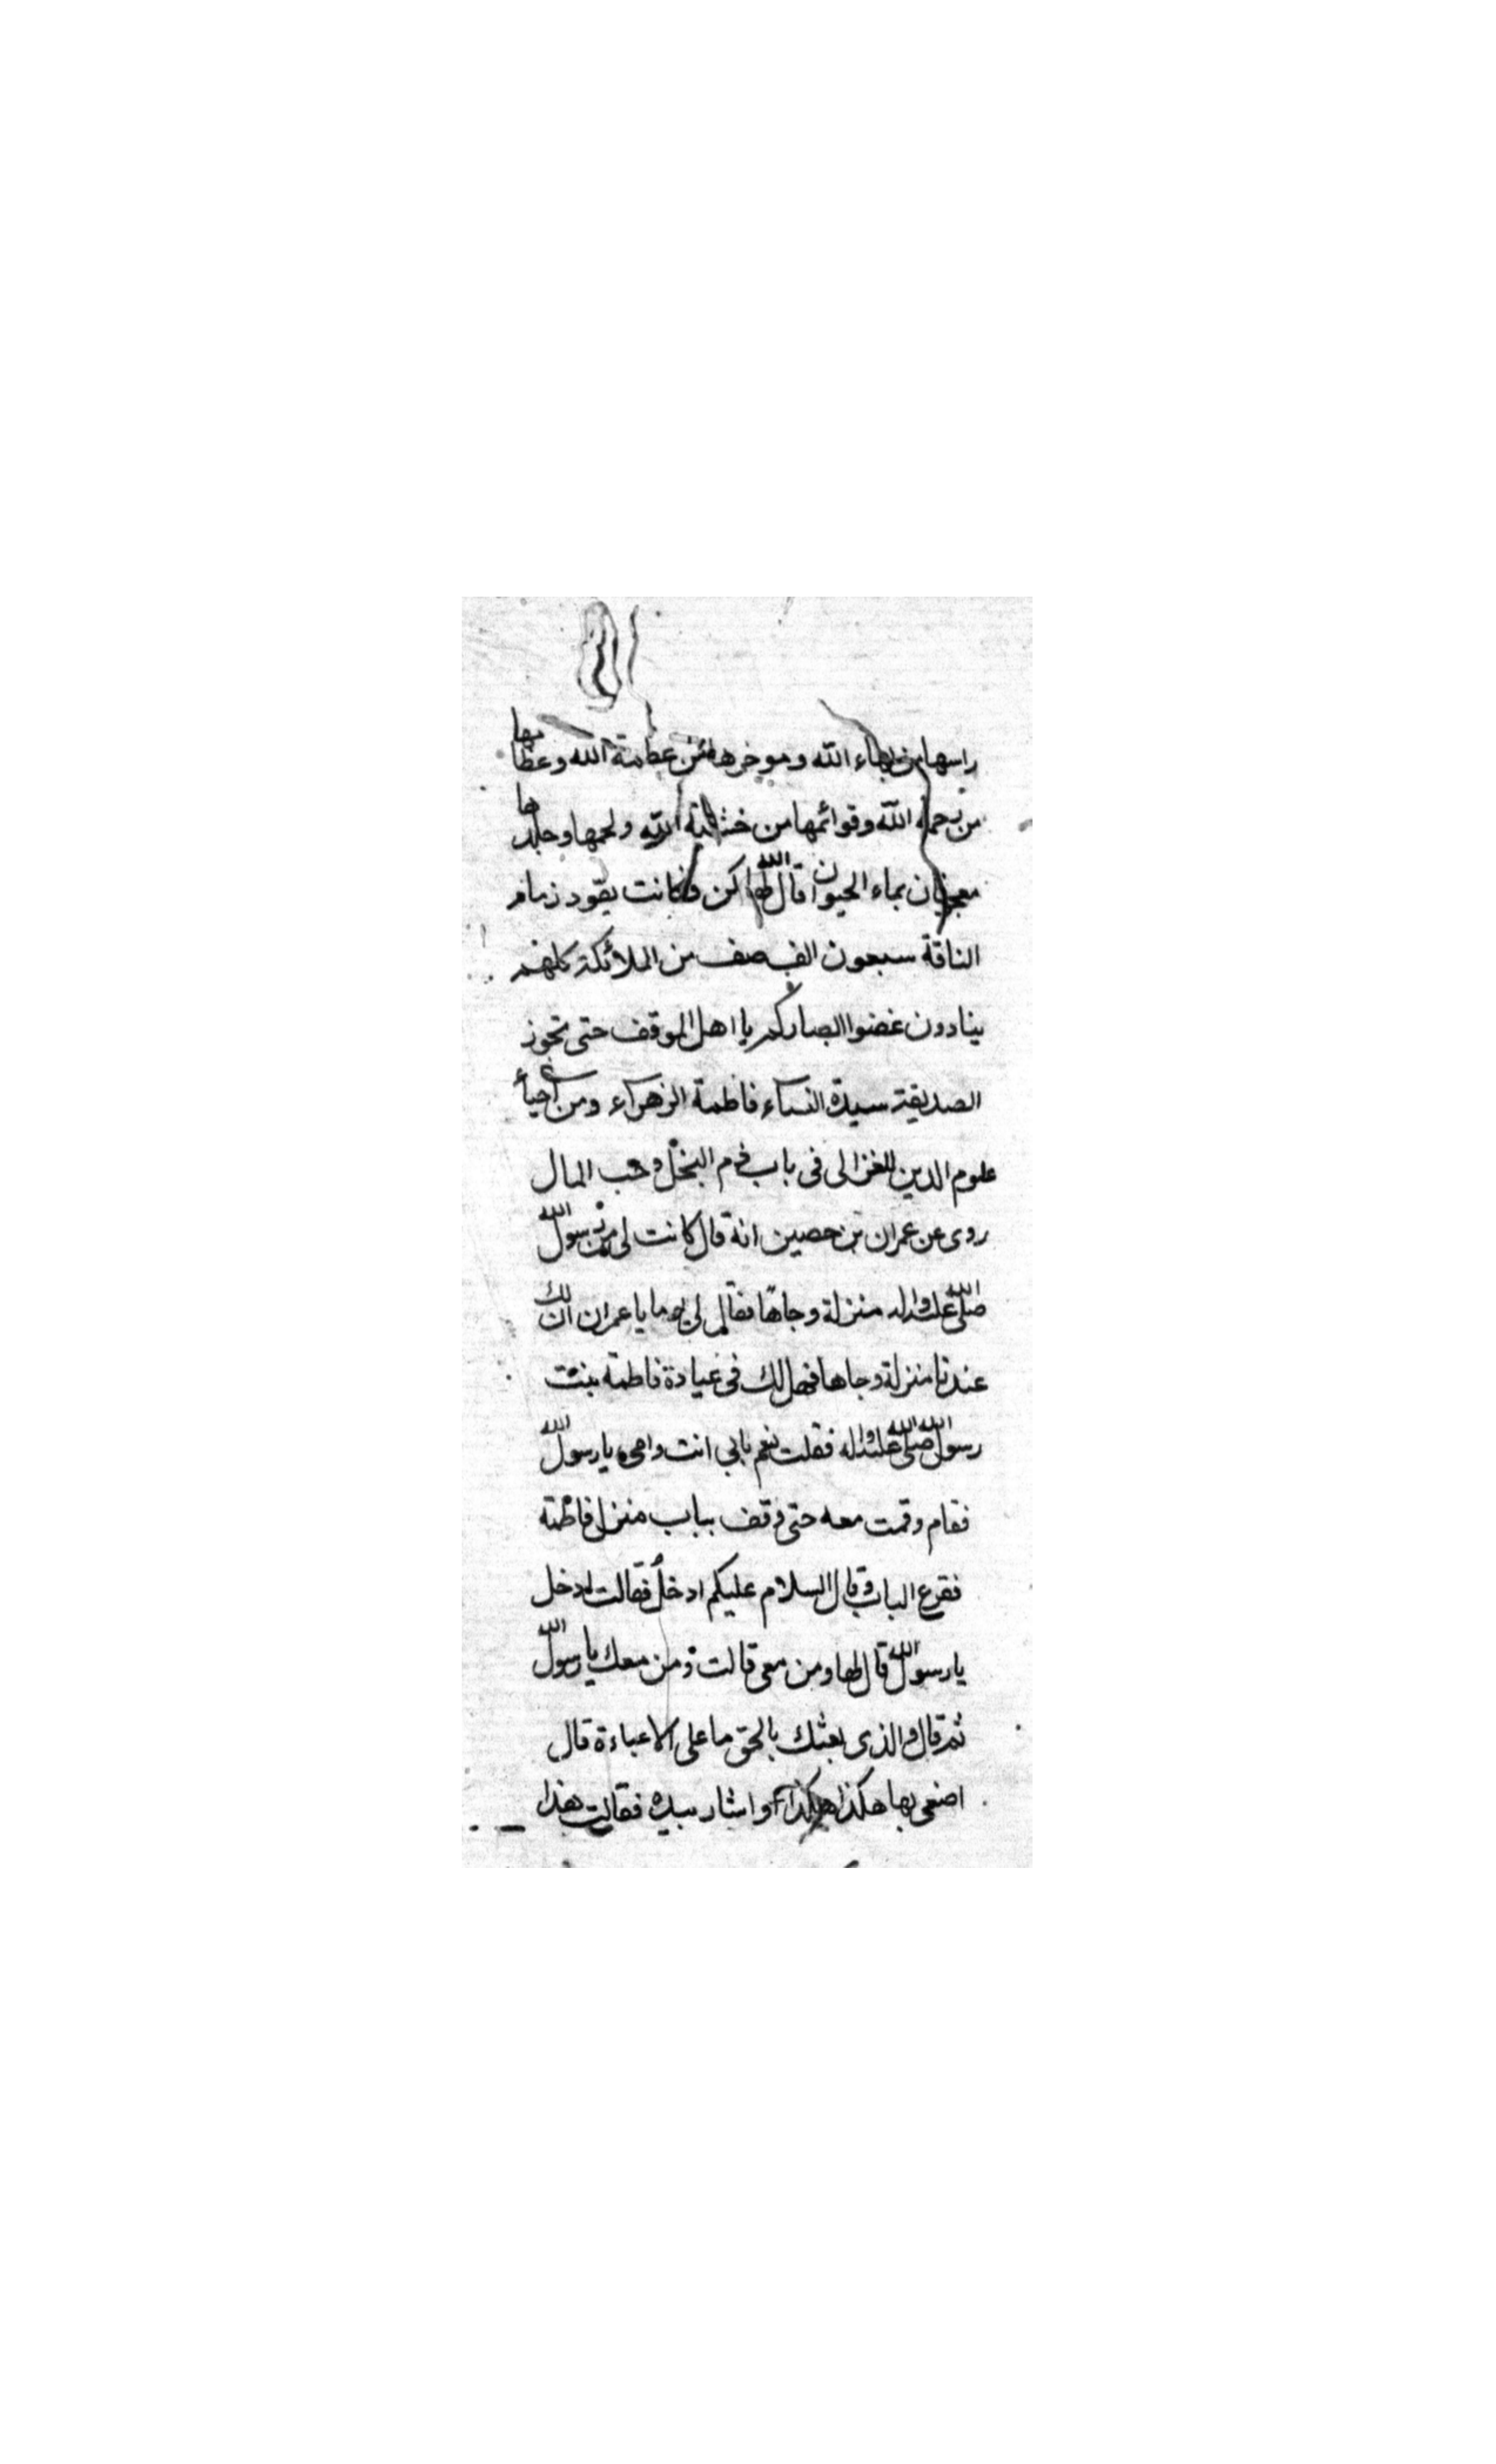 راسها من بهاء الله وموخرها من عظمة الله وعظامها
من رحمة الله وقوائمها من خشية الله ولحمها وجلدها
معجونان بماء الحيوان قال الله لها كن فكانت يقود زمام
الناقة سبعون الف صف من الملائكة كلهم
ينادون غضوا ابصاركم يا اهل الموقف حتى تجوز
الصديقة سيدة النساء فاطمة الزهراء ومن احياء
علوم الدين للغزالى فى باب ذم البخل وحب المال
روى عن عمران بن حصين انه قال كانت لى من رسول الله
صلى الله عليه واله منزلة وجاها فقال لى يوما يا عمران ان لك
عندنا منزلة وجاها فهل لك فى عيادة فاطمة بنت
رسول الله صلى الله عليه واله فقلت نعم بابي انت وامى يا رسول الله
فقام وقمت معه حتى وقف بباب منزل فاطمة
فقرع الباب وقال السلام عليكم ادخل فقالت ادخل
يا رسول الله قال لها ومن معى قالت ومن معك يا رسول الله
ثم قال والذى بعثك بالحق ما على الا عباءة قال
اصنعى بها هكذا هكذا واشار بيده فقالت هذا